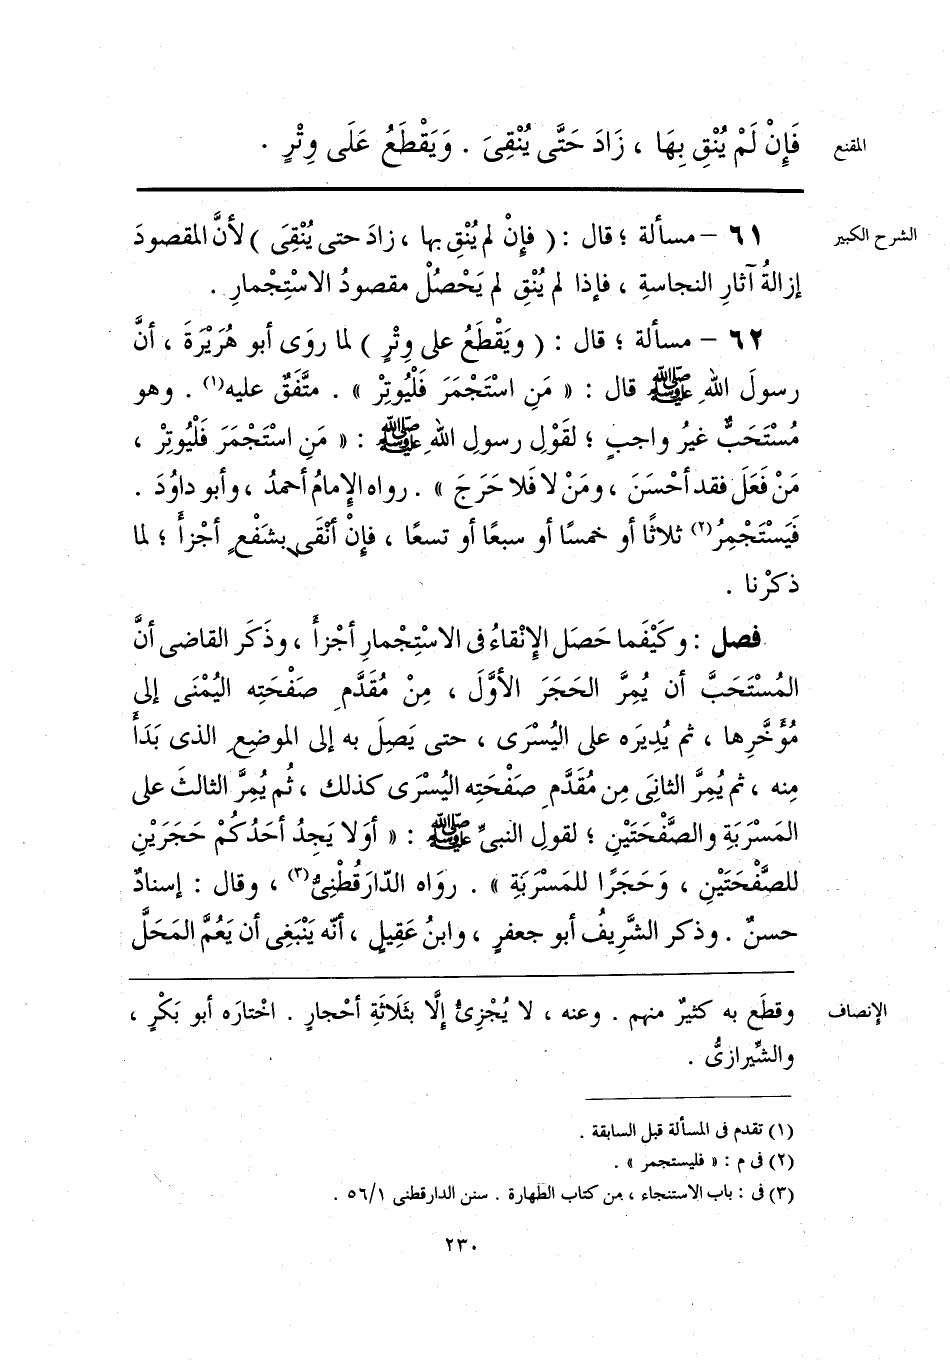 المقنع فَإِنْ لَمْ يُنْقِ بِهَا ، زَادَ حَتَّى يُنْقِىَ . وَيَقْطَعُ عَلَى وِتْرٍ .
الشرح الكبير ٦١ – مسألة ؛ قال : ( فإِنْ لم يُنْقِ بها ، زادَ حتى يُنْقِىَ ) لأنَّ المقصودَ
إزالةُ آثارِ النجاسةِ ، فإذا لم يُنْقِ لم يَحْصُلْ مقصودُ الاسْتِجْمارِ .
٦٢ – مسألة ؛ قال : ( ويَقْطَعُ على وِتْرٍ ) لما روَى أبو هُرَيْرَةَ ، أنَّ
رسولَ اللهِ ﷺ قال : « مَنِ اسْتَجْمَرَ فَلْيُوتِرْ » . متَّفَقٌ عليه(١) . وهو
مُسْتَحَبٌّ غيرُ واجبٍ ؛ لقَوْلِ رسولِ اللهِ ﷺ : « مَنِ اسْتَجْمَرَ فَلْيُوتِرْ ،
مَنْ فَعَلَ فقد أحْسَنَ ، ومَنْ لا فَلا حَرَجَ » . رواه الإمامُ أحمدُ ، وأبو داوُدَ .
فَيَسْتَجْمِرُ(٢) ثلاثًا أو خمسًا أو سبعًا أو تسعًا ، فإنْ أنْقَى بشَفْعٍ أجْزأَ ؛ لما
ذكرْنا .
فصل : وكَيْفَما حَصَل الإِنْقاءُ فى الاسْتِجْمارِ أجْزأَ ، وذَكَر القاضى أنَّ
المُسْتَحَبَّ أن يُمِرَّ الحَجَرَ الأوَّلَ ، مِنْ مُقَدَّمِ صَفْحَتِه اليُمْنَى إلى
مُؤَخَّرِها ، ثم يُدِيرَه على اليُسْرَى ، حتى يَصِلَ به إلى الموضِعِ الذى بَدَأَ
مِنه ، ثم يُمِرَّ الثانِىَ مِن مُقَدَّمِ صَفْحَتِه اليُسْرَى كذلك ، ثُم يُمِرَّ الثالثَ على
المَسْرَبَةِ والصَّفْحَتَيْنِ ؛ لقولِ النبىِّ ﷺ : « أوَلا يَجِدُ أحَدُكُمْ حَجَرَيْنِ
للصَّفْحَتَيْنِ ، وَحَجَرًا للمَسْرَبَةِ » . روَاه الدّارَقُطْنِىُّ(٣) ، وقال : إسنادٌ
حسنٌ . وذكر الشَّرِيفُ أبو جعفرٍ ، وابنُ عَقِيلٍ ، أنَّه يَنْبَغِى أن يَعُمَّ المَحَلَّ
الإنصاف وقطَع به كثيرٌ منهم . وعنه ، لا يُجْزِئُ إلَّا بثَلَاثَةِ أحْجارٍ . اخْتارَه أبو بَكْرٍ ،
والشِّيرازىُّ .
(١) تقدم فى المسألة قبل السابقة .
(٢) فى م : « فليستجمر » .
(٣) فى : باب الاستنجاء ، من كتاب الطهارة . سنن الدارقطنى ٥٦/١ .
٢٣٠